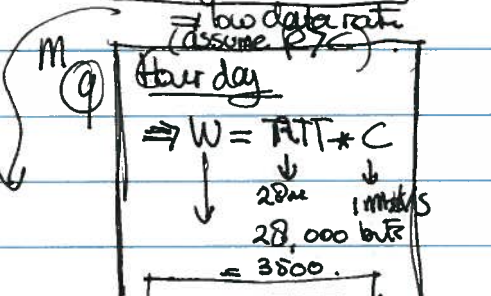 ⇒ low data rate
(assume P>C)
M
9
Hour day
⇒ W = RTT * C
↓ ↓ ↓
28m 1 Mbit/s
28,000 bits
= 3500.